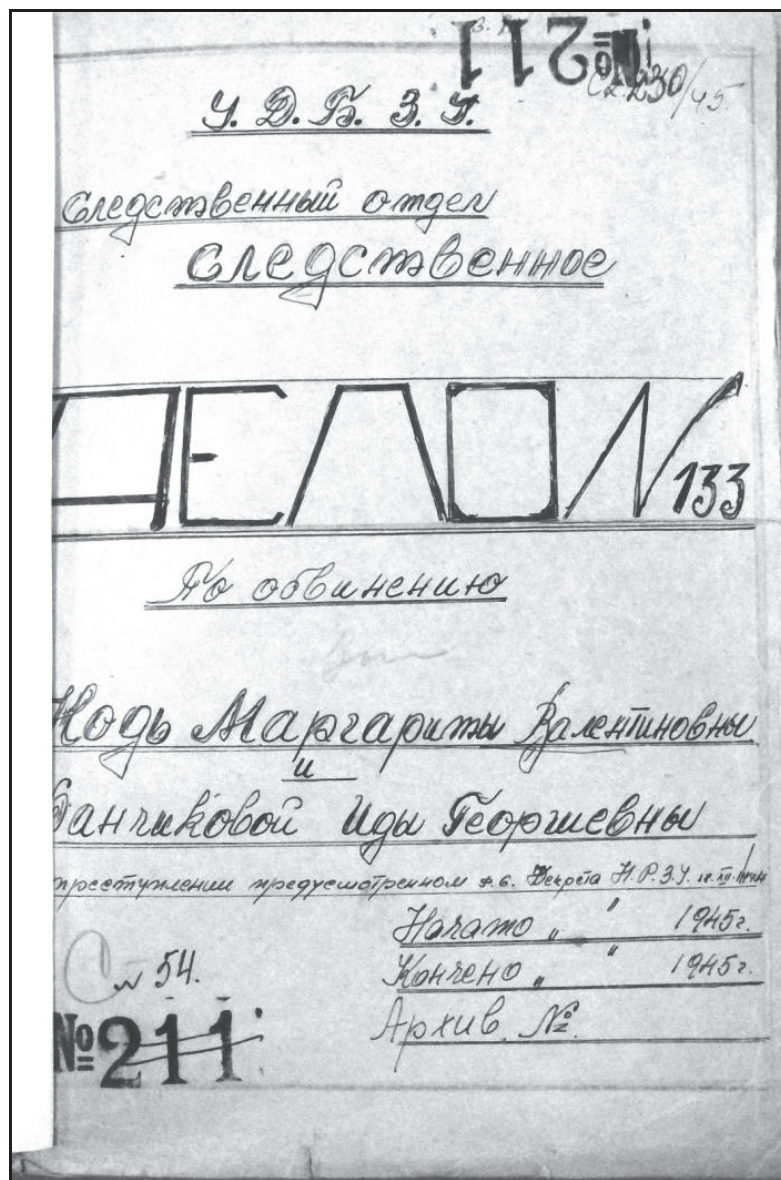 № 211
230/45
У. Д. Б. З. У.
Следственный отдел
Следственное
ДЕЛО N 133
По обвинению
Нодь Маргариты Валентиновны
и
Банчиковой Иды Георгиевны
преступлении предусмотренном Декрета Н.Р.З.У.
Начато „ “ 1945г.
Кончено „ “ 1945г.
N 54.
Архив №
№ 211